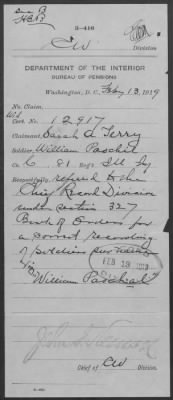 3-416
CW
Division
DEPARTMENT OF THE INTERIOR
BUREAU OF PENSIONS
Washington, D. C., Feby 13, 1919
No. Claim,
Wid
Cert. No. 12917
Claimant, Sarah A. Terry
Soldier, William Paschal
Co. C, 81 Reg't Ill Inf
Respectfully, referred to the
Chief Record Division
under section 327
Book of Orders for
a correct recording
of soldier's name
William Paschal
FEB 13 1919
Chief of CW Division.